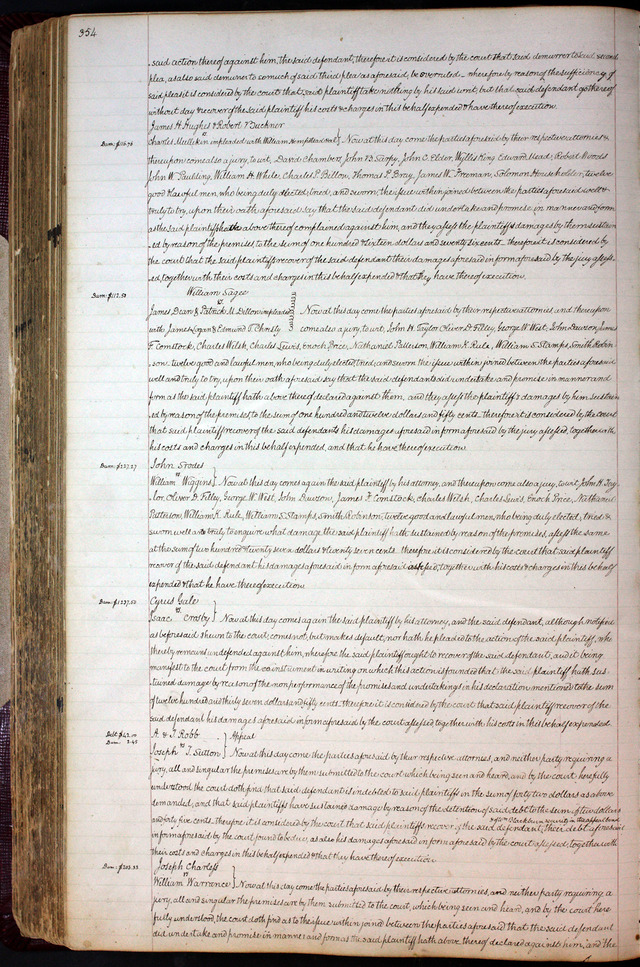 354
said action thereof against him, the said defendant, therefore it is considered by the court that said demurrer to said second
plea, as also said demurrer to so much of said third plea as aforesaid, be overruled – wherefore by reason of the sufficiency of
said pleas it is considered by the court that said plaintiff take nothing by his said writ, but that said defendant go thereof
without day & recover of the said plaintiff his costs & charges in this behalf expended & have thereof execution.
James H. Hughes & Robert Buckner
Dam: $116.76
Charles Mullikin impleaded with William Hempstead } Now at this day come the parties aforesaid by their respective attornies &
thereupon come also a jury, to wit, David Chambers, John B. Sarpy, John C. Elder, Wyllis King, Edward Mead, Robert Woods
John W. Paulding, William H. White, Charles P. Billon, Thomas P. Bray, James W. Freeman, Solomon Householder, twelve
good & lawful men, who being duly elected, tried, and sworn, the issue within joined between the parties aforesaid well &
truly to try, upon their oath aforesaid say that the said defendant did undertake and promise, in manner and form
as the said plaintiffs hath above thereof complained against him, and they assess the plaintiffs damages by them sustain
ed by reason of the premises to the sum of one hundred & sixteen dollars and seventy six cents. therefore it is considered by
the court that the said plaintiffs recover of the said defendant their damages aforesaid in form aforesaid by the jury assess
ed, together with their costs and charges in this behalf expended & that they have thereof execution.
William Sagee
Dam: $112.50
vs
James Dean & Patrick M. Dillon impleaded } Now at this day come the parties aforesaid by their respective attornies, and thereupon
with James Logan & Edmund T. Christy } come also a jury, to wit, John H. Taylor, Oliver D. Filley, George W. West, John Dawson, James
F. Comstock, Charles Welsh, Charles Lewis, Enoch Price, Nathaniel Patterson, William K. Rule, William S. Stamps, Smith Robin
son, twelve good and lawful men, who being duly elected, tried, and sworn the issue within joined between the parties aforesaid
well and truly to try, upon their oath aforesaid say that the said defendants did undertake and promise in manner and
form as the said plaintiff hath above thereof declared against them, and they assess the plaintiff's damages by him sustain
ed by reason of the premises, to the sum of one hundred and twelve dollars and fifty cents. therefore it is considered by the court
that said plaintiff recover of the said defendants his damages aforesaid in form aforesaid by the jury assessed, together with
his costs and charges in this behalf expended, and that he have thereof execution.
Dam: $227.27
John Srodes
vs
William Wiggins } Now at this day comes again the said plaintiff by his attorney, and thereupon come also a jury, to wit John H. Tay
lor, Oliver D. Filley, George W. West, John Dawson, James F. Comstock, Charles Welsh, Charles Lewis, Enoch Price, Nathaniel
Patterson, William K. Rule, William S. Stamps, Smith Robinson, twelve good and lawful men, who being duly elected, tried &
sworn well and truly to enquire what damage the said plaintiff hath sustained by reason of the premises, assess the same
at the sum of two hundred & twenty seven dollars & twenty seven cents. therefore it is considered by the court that said plaintiff
recover of the said defendant his damages aforesaid in form aforesaid assessed, together with his costs & charges in this behalf
expended & that he have thereof execution.
Dam: $1237.50
Cyrus Gale
vs
Isaac Crosby } Now at this day comes again the said plaintiff by his attorney, and the said defendant, although notified
as before said shewn to the court, comes not, but makes default, nor hath he plead to the action of the said plaintiff, who
thereby remains undefended against him, wherefore the said plaintiff ought to recover of the said defendant, and it being
manifest to the court from the instrument in writing on which this action is founded that the said plaintiff hath sus
tained damage by reason of the nonperformance of the promises and undertakings in his declaration mentioned to the sum
of twelve hundred and thirty seven dollars and fifty cents, therefore it is considered by the court that said plaintiff recover of the
said defendant his damages aforesaid in form aforesaid by the court assessed together with his costs in this behalf expended.
Debt $42.00
Dam: 2.45
A. & J. Robb } Appeal
vs
Joseph T. Sutton } Now at this day come the parties aforesaid by their respective attornies, and neither party requiring a
jury, all and singular the premises are by them submitted to the court which being seen and heard, and by the court here fully
understood the court doth find that said defendant is indebted to said plaintiffs in the sum of forty two dollars as above
demanded, and that said plaintiffs have sustained damage by reason of the detention of said debt to the sum of two dollars
and forty five cents. therefore it is considered by the court that said plaintiffs recover of the said defendant, their debt aforesaid
in form aforesaid by the court found to be due, as also his damages aforesaid in form aforesaid by the court assessed, together with
their costs and charges in this behalf expended & that they have thereof execution.
Dam: $203.33
Joseph Charless
vs
William Warrence } Now at this day come the parties aforesaid by their respective attornies, and neither party requiring a
jury, all and singular the premises are by them submitted to the court, which being seen and heard, and by the court here
fully understood, the court doth find as to the issue within joined between the parties aforesaid that the said defendant
did undertake and promise in manner and form as the said plaintiff hath above thereof declared against him, and the